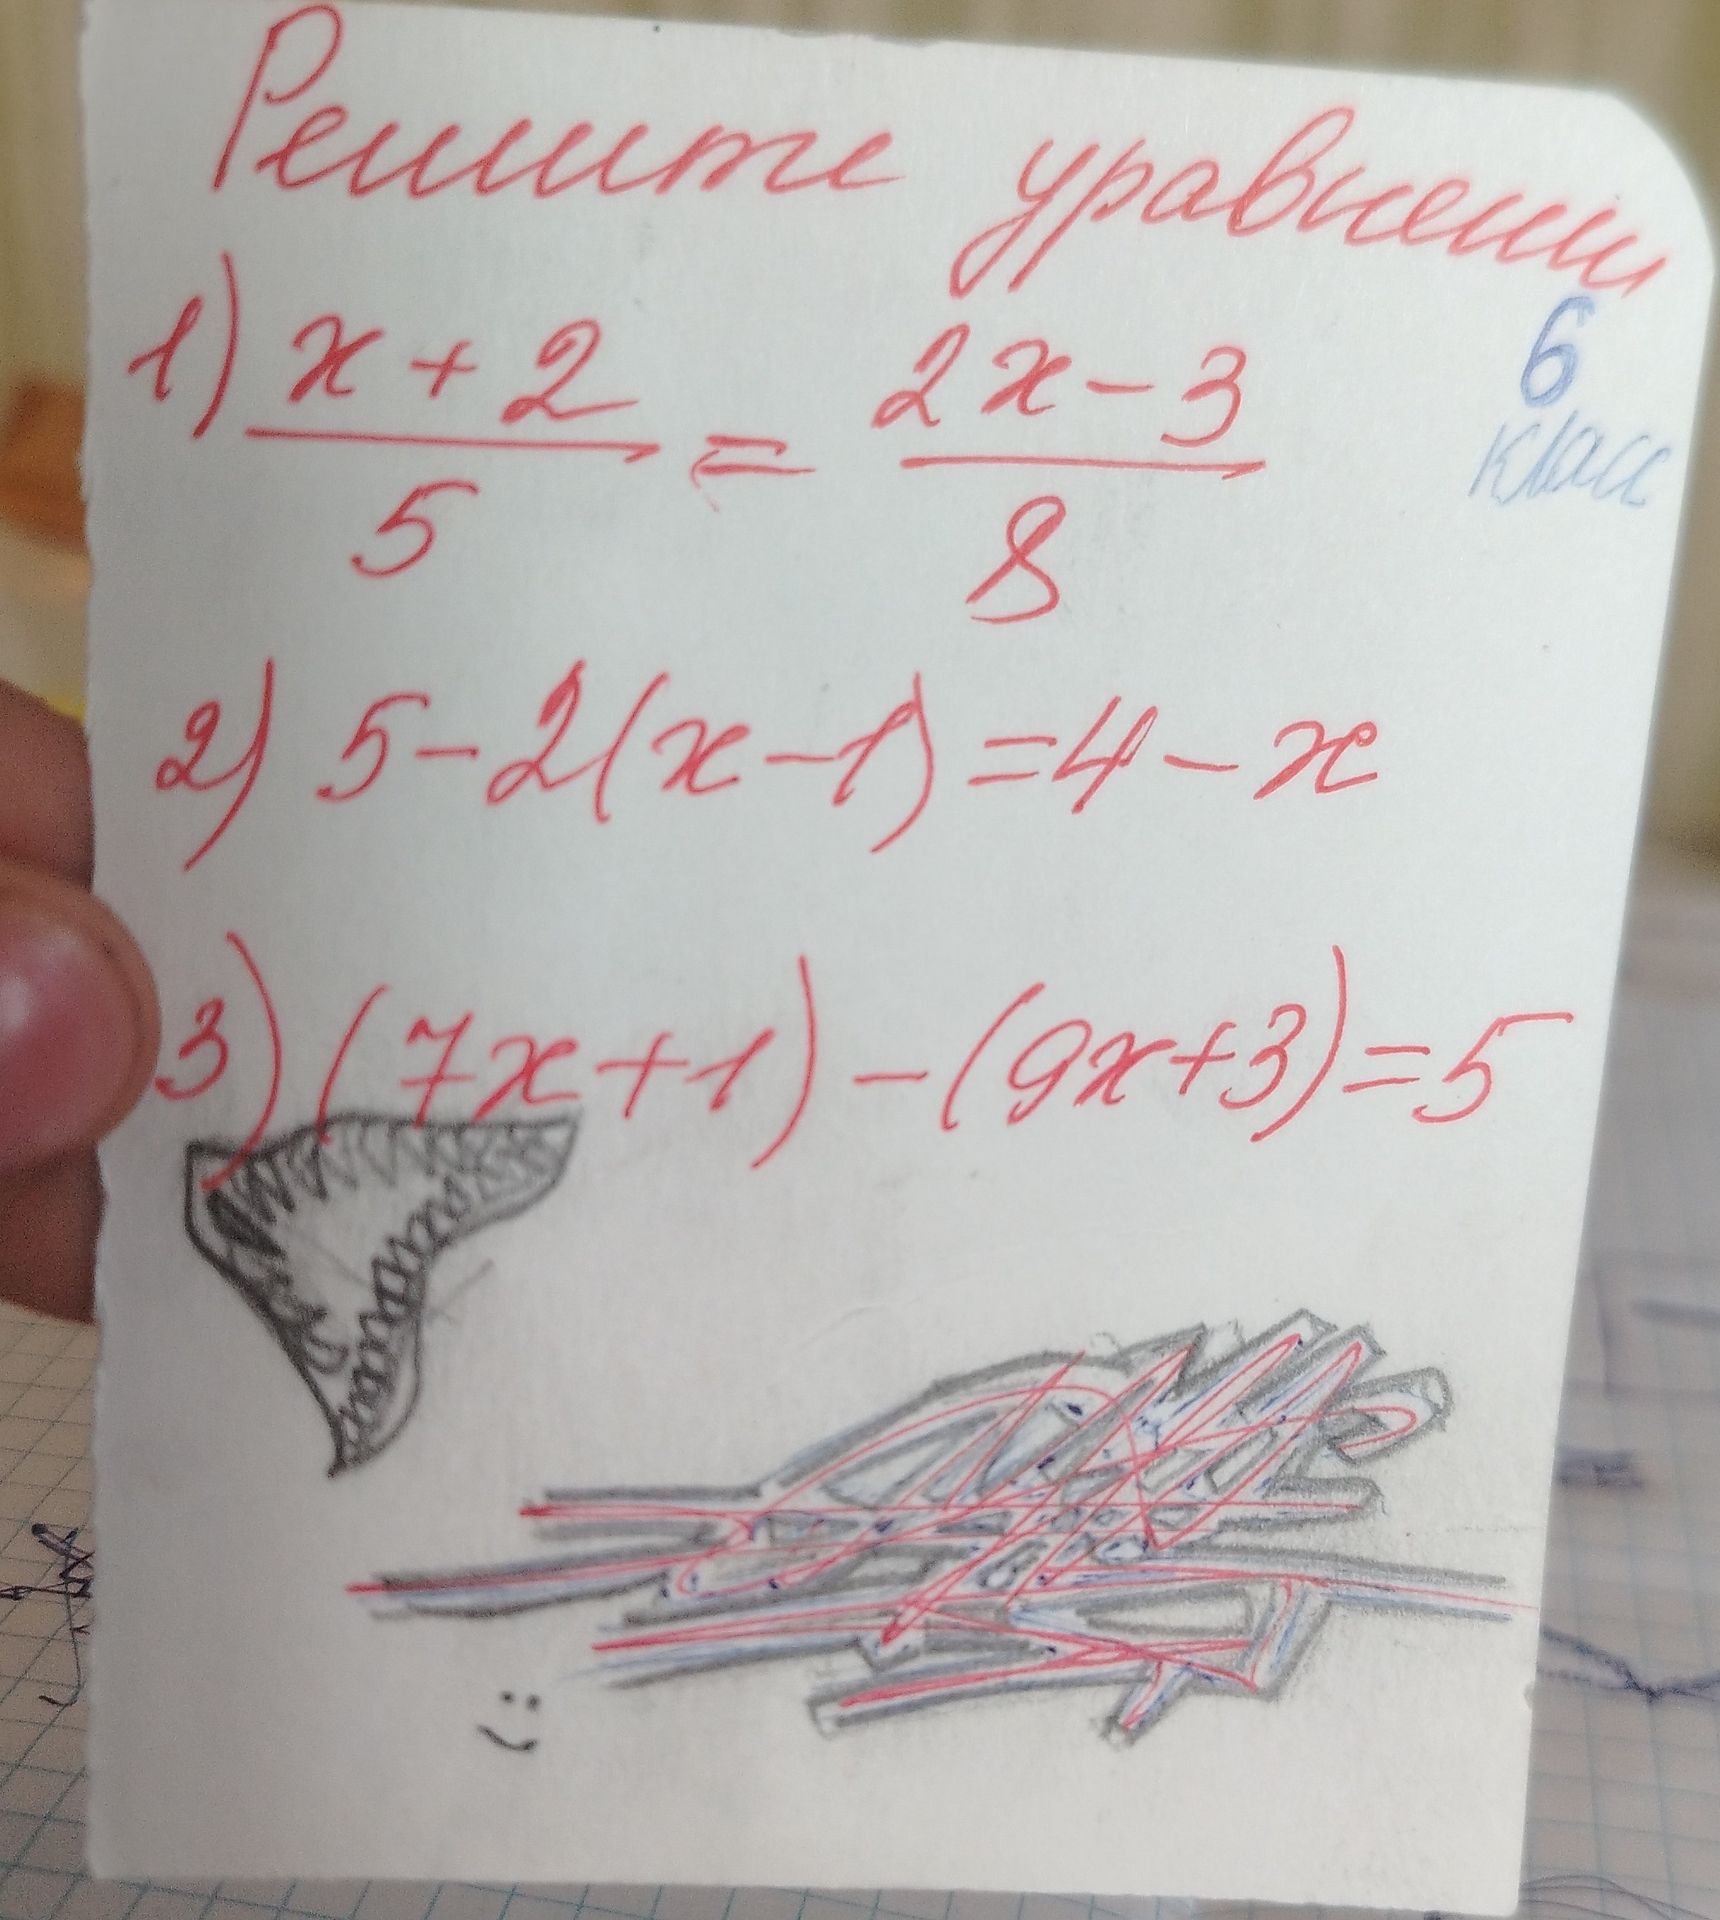 Решите уравнени
1) x + 2 / 5 = 2x - 3 / 8
6
класс
2) 5 - 2(x - 1) = 4 - x
3) (7x + 1) - (9x + 3) = 5
(: